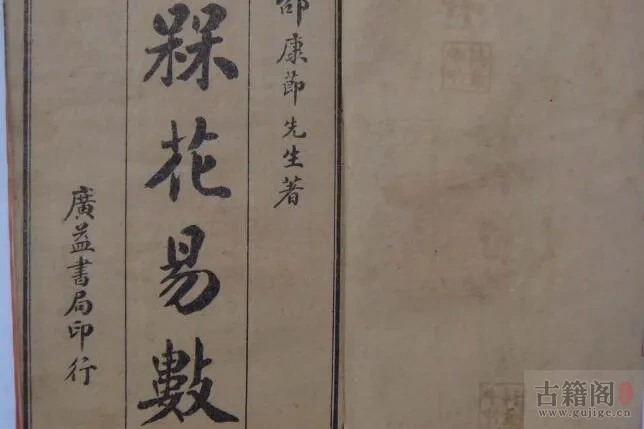 邵康節先生著
槑花易數
廣益書局印行
古籍阁
www.gujige.cn